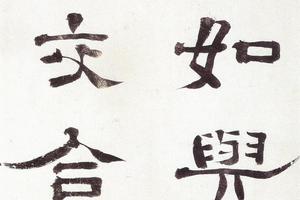 如與
交合